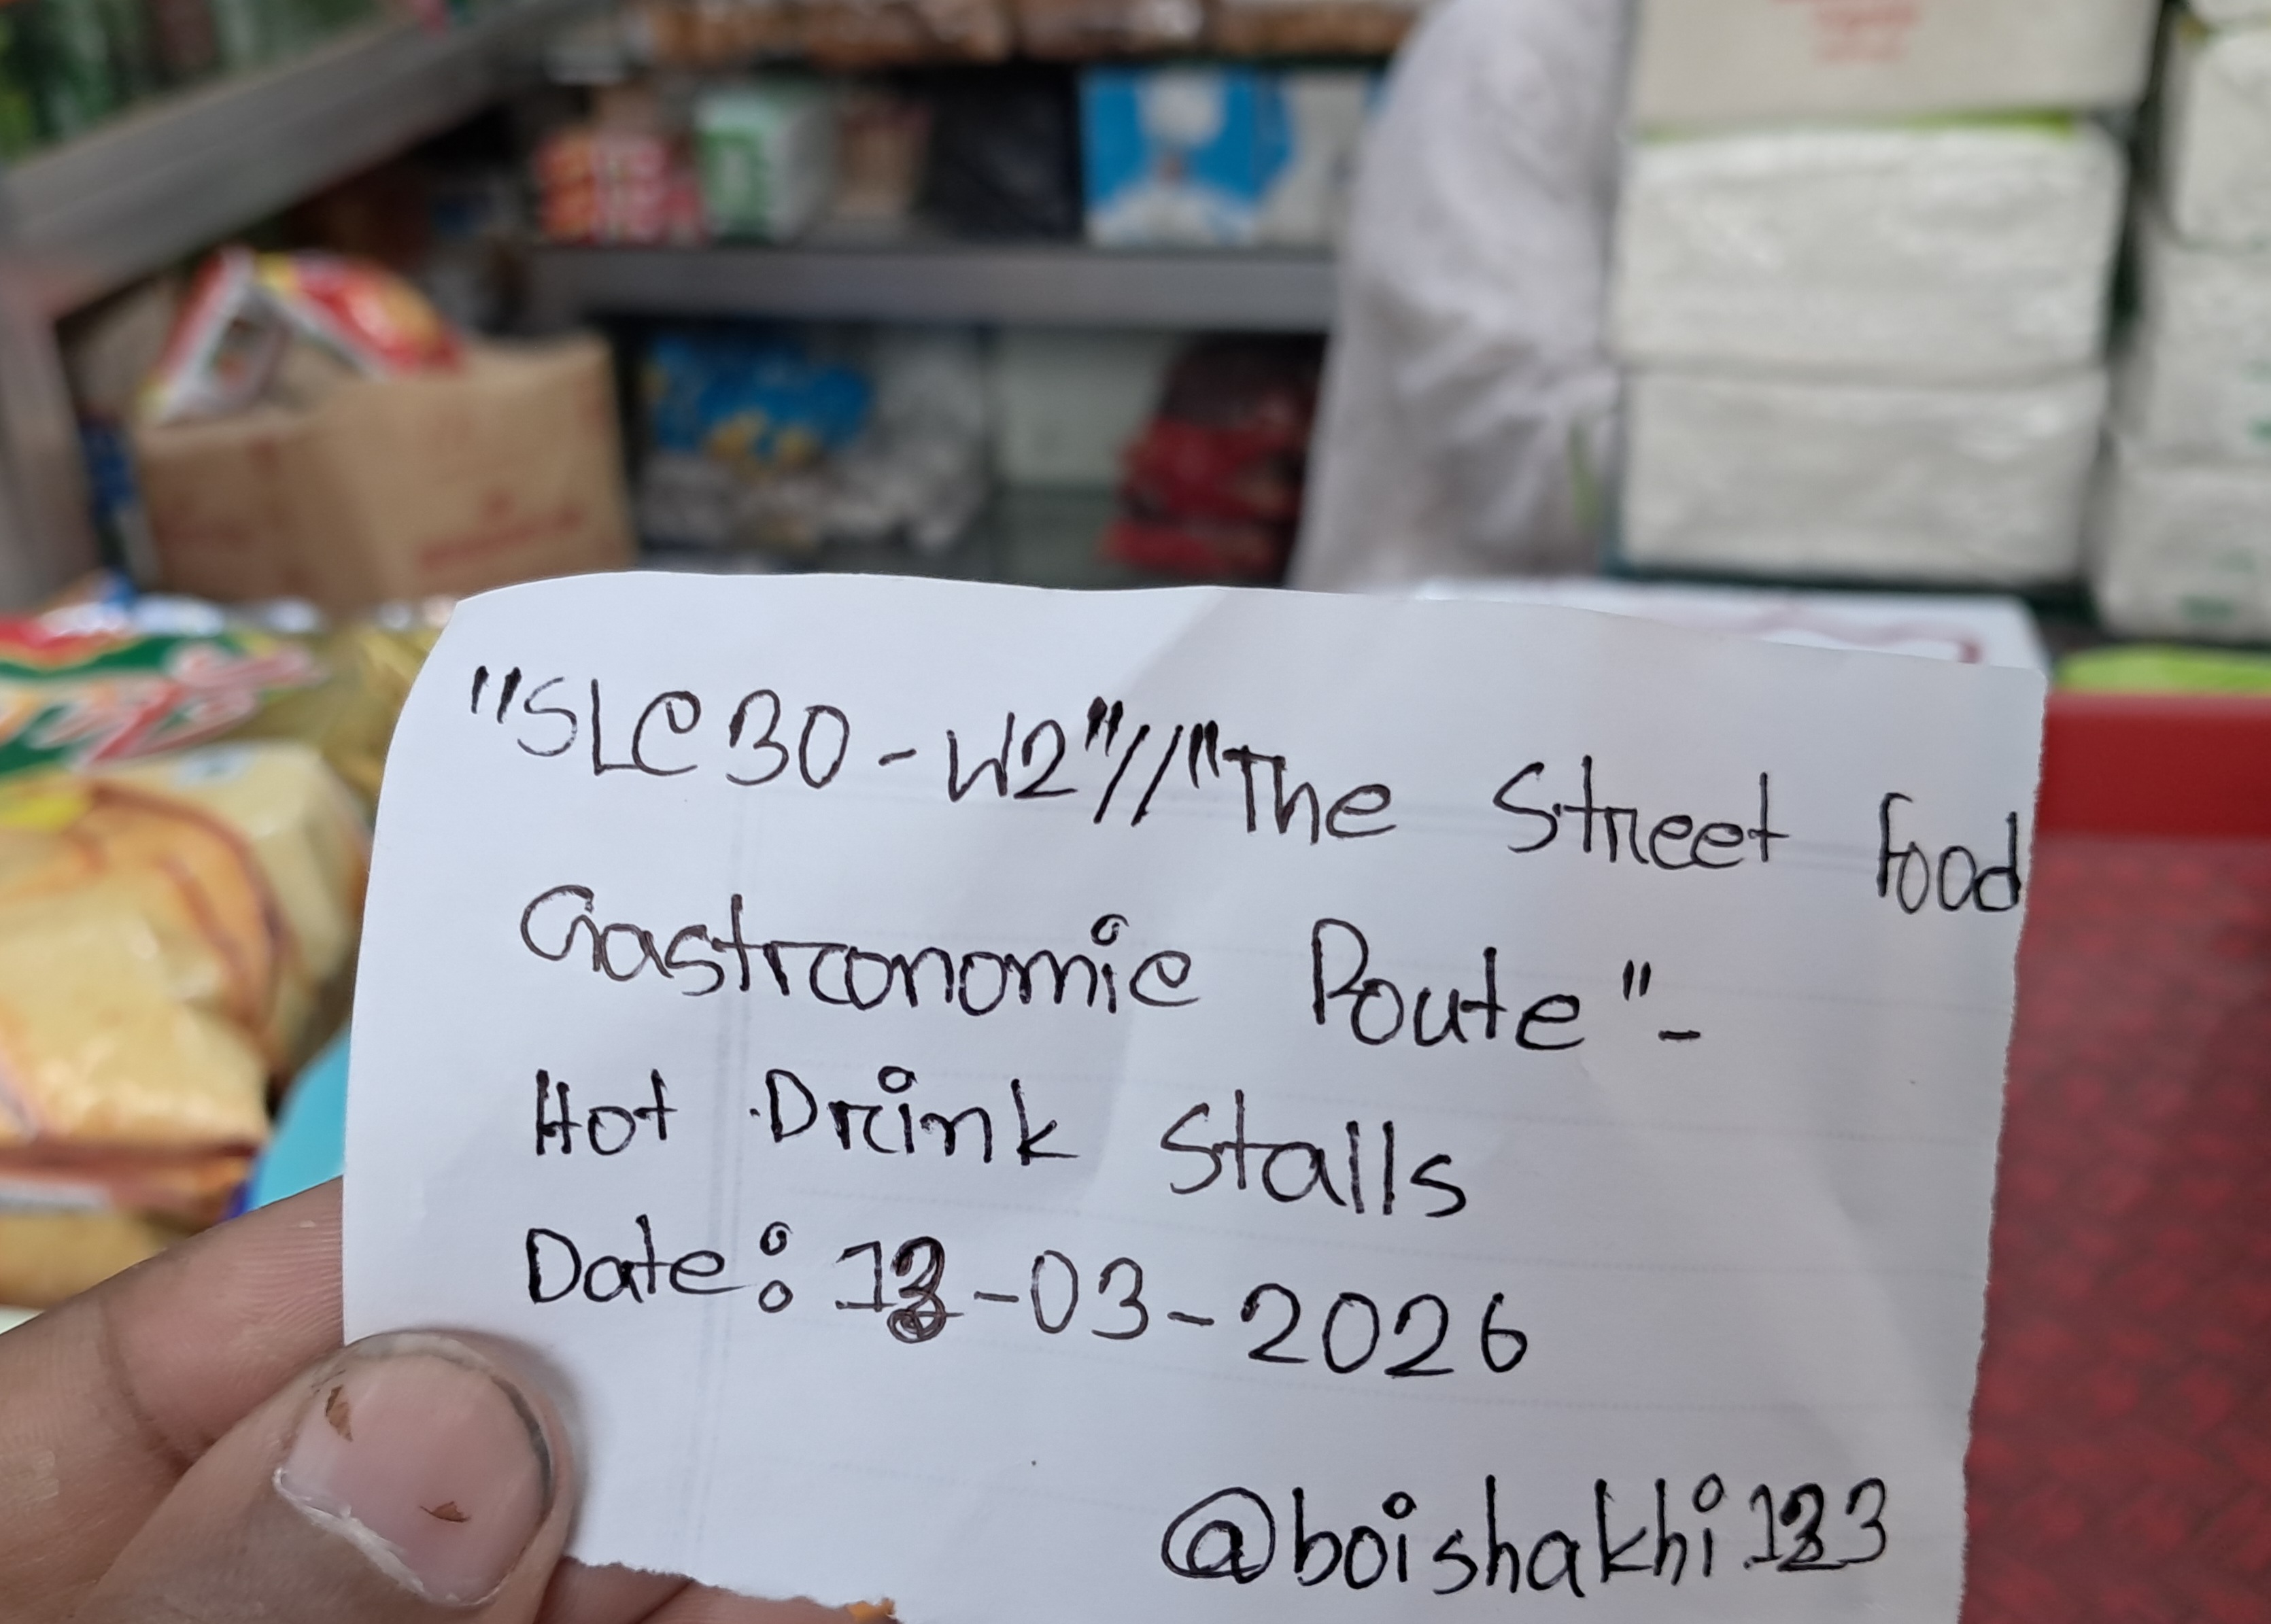 "SLC30-W2"//"The Street Food
Gastronomic Route"-
Hot Drink Stalls
Date: 13-03-2026
@boishakhi123